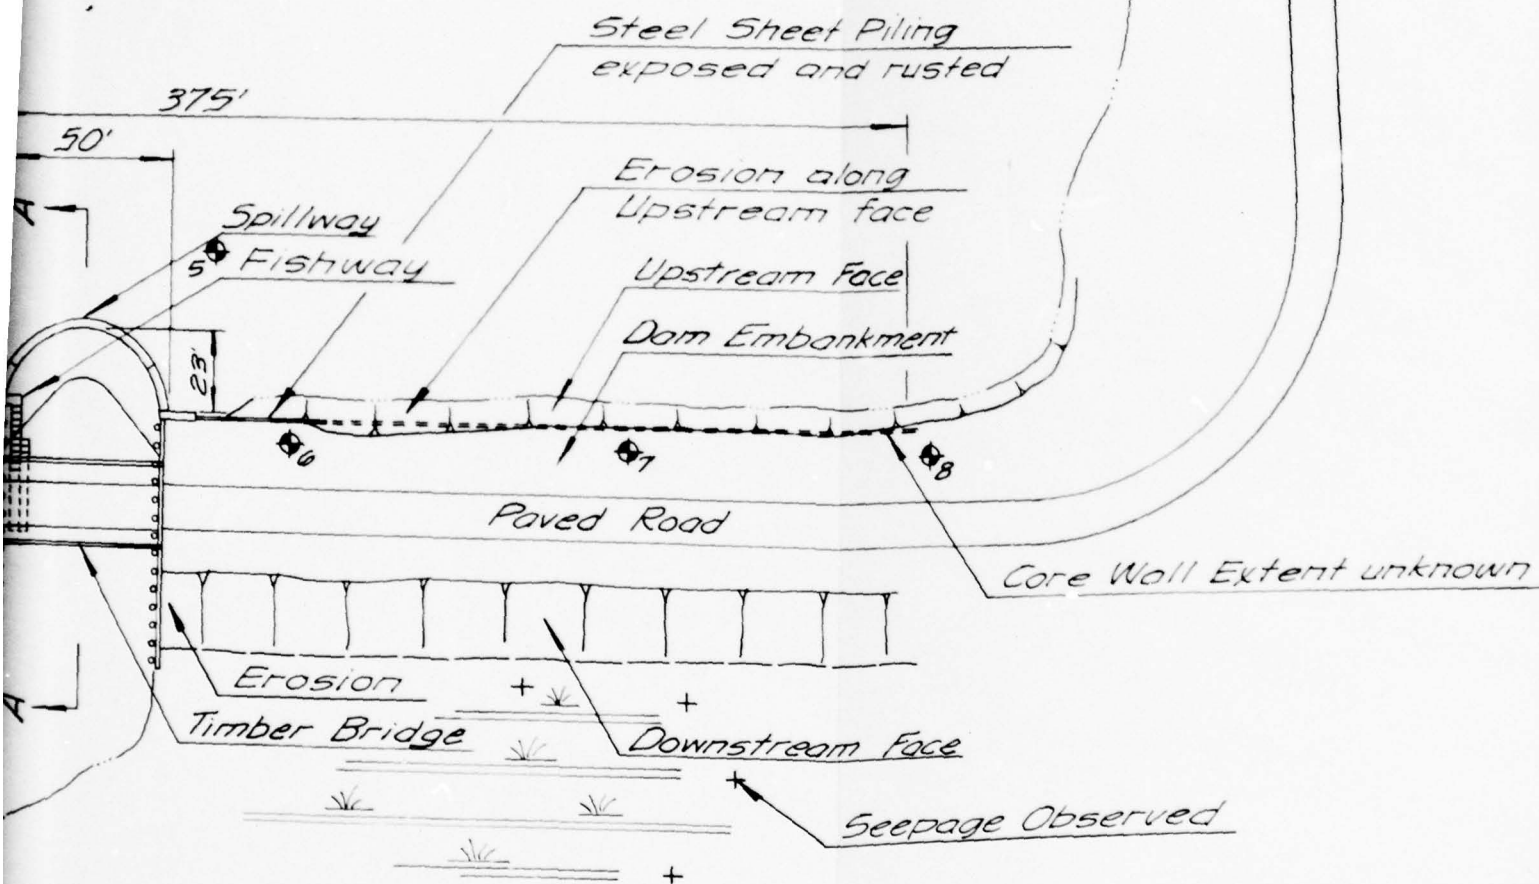 Steel Sheet Piling
exposed and rusted
375'
50'
Erosion along
Upstream face
A
Spillway
5
Fishway
Upstream Face
Dam Embankment
23'
6
7
8
Paved Road
Core Wall Extent unknown
Erosion
A
Timber Bridge
Downstream Face
Seepage Observed